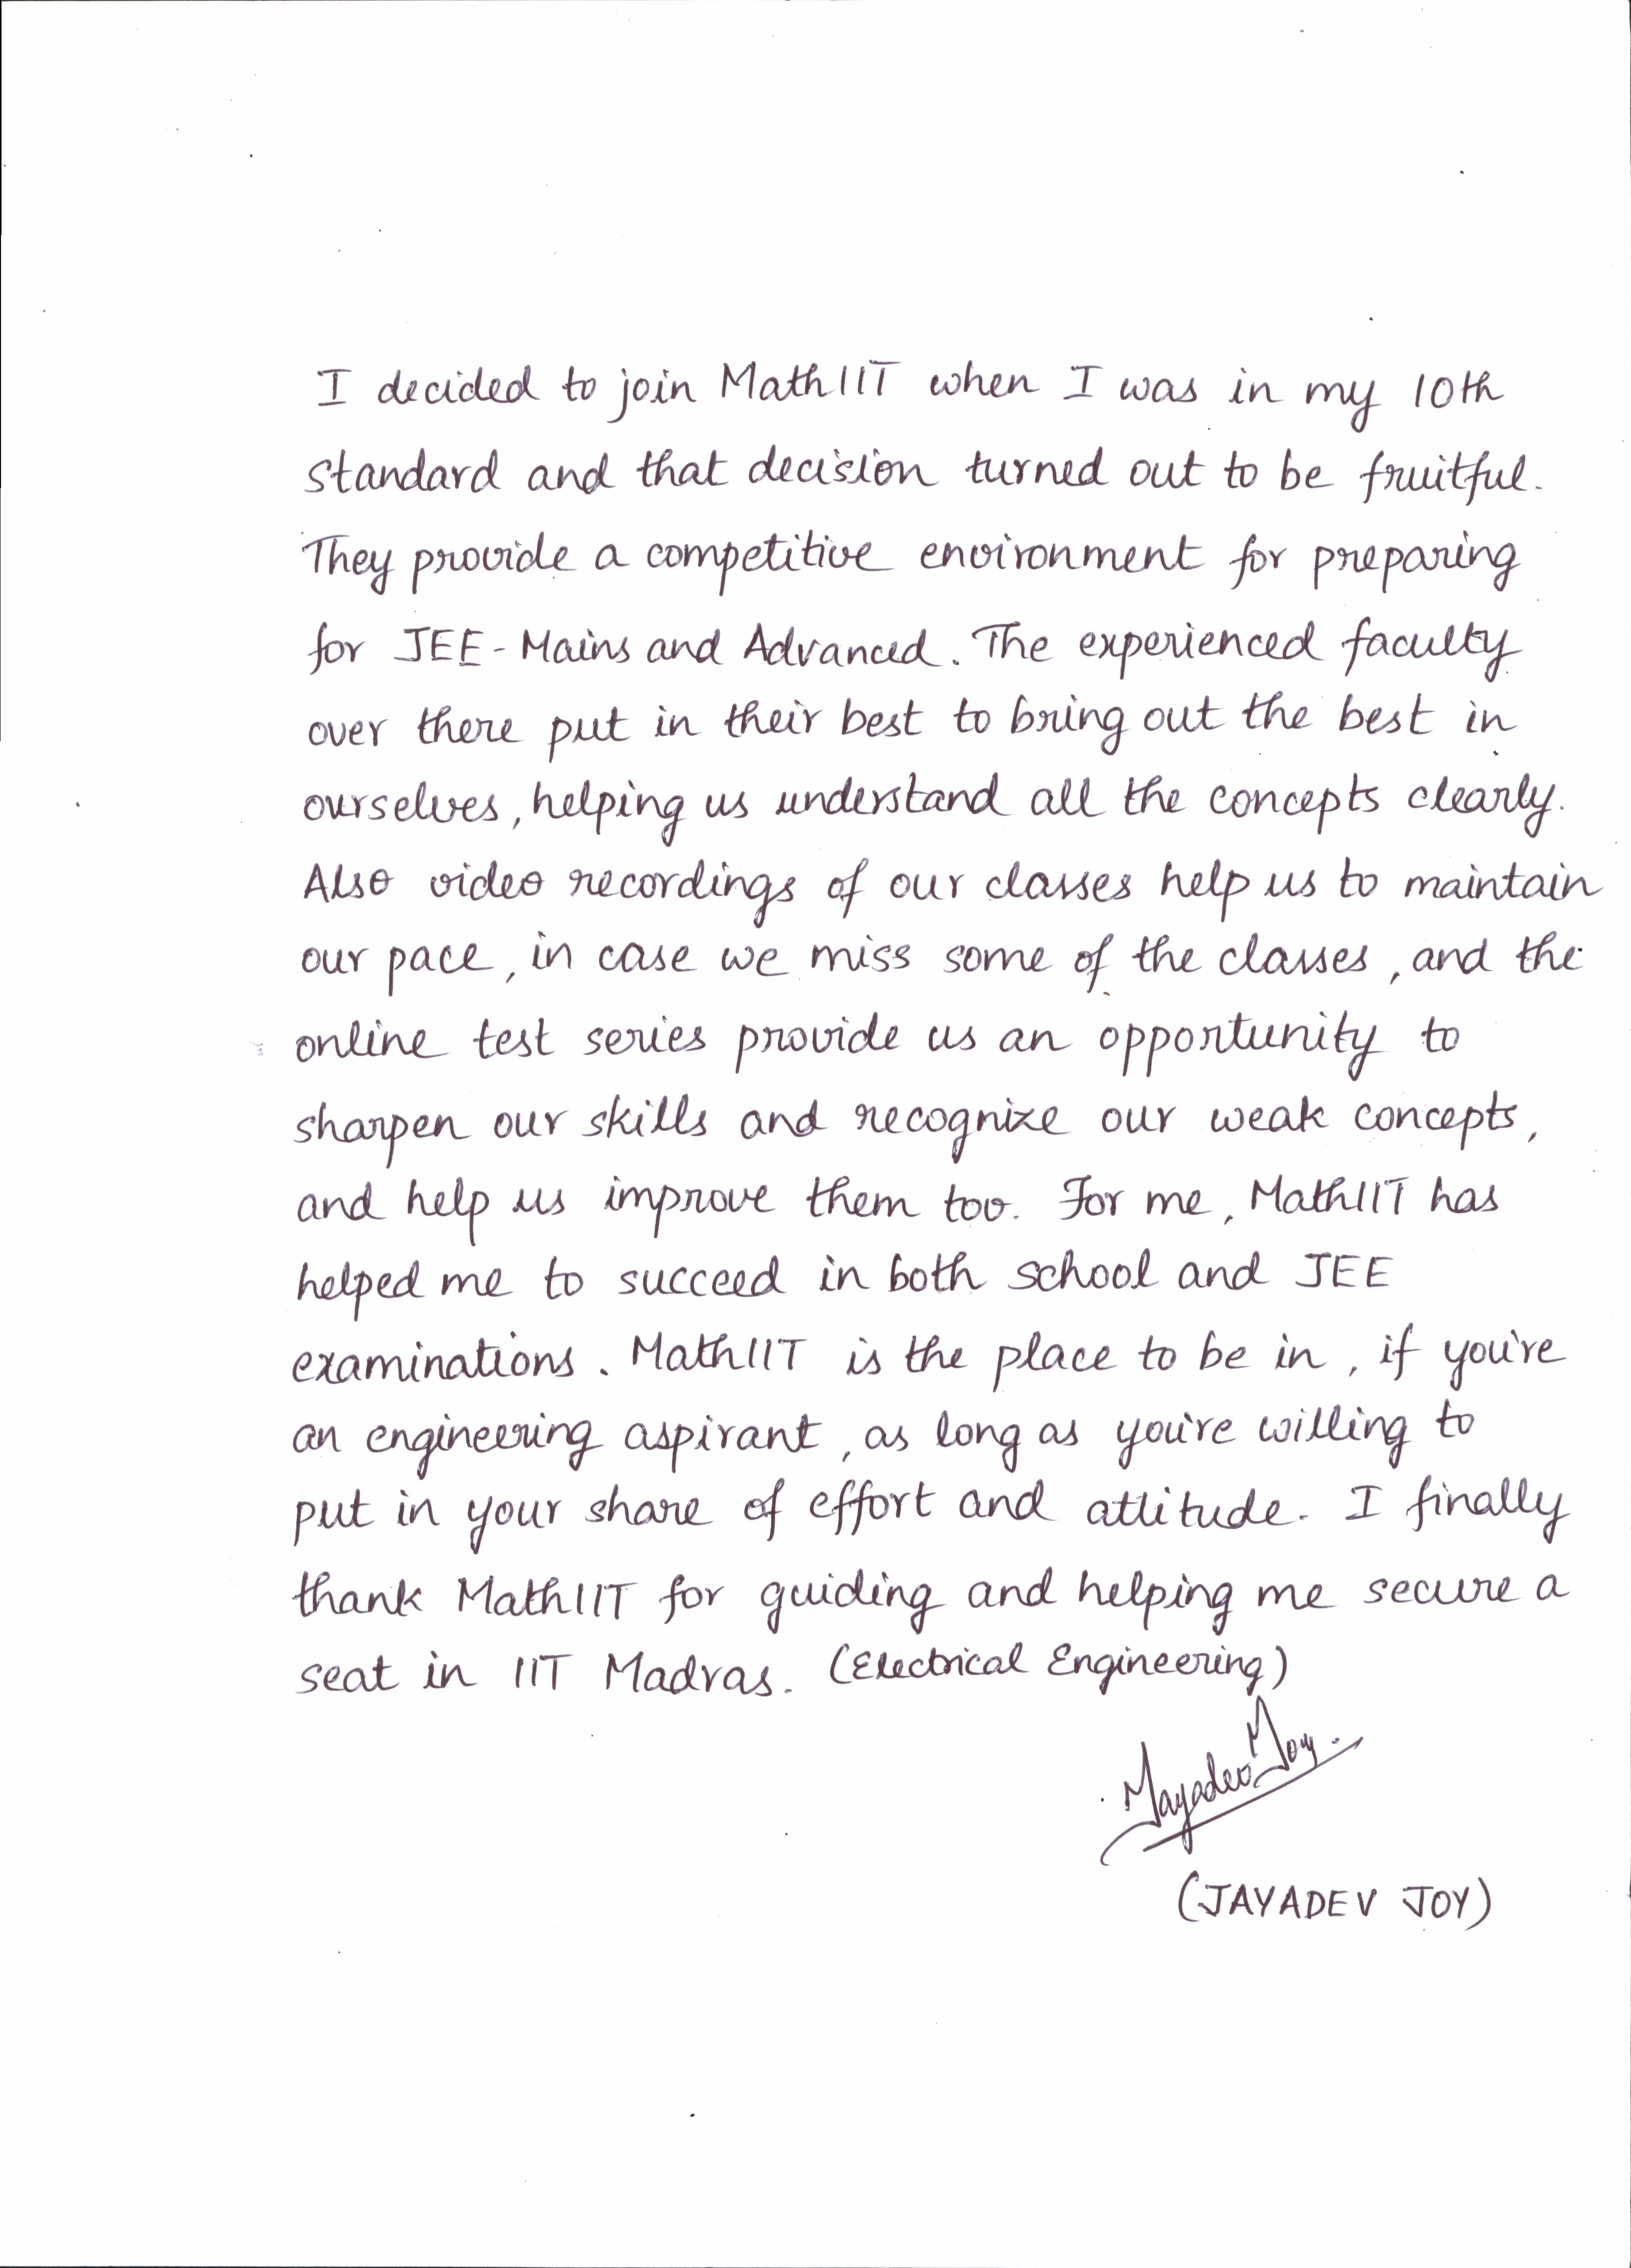 I decided to join MathIIT when I was in my 10th
standard and that decision turned out to be fruitful.
They provide a competitive environment for preparing
for JEE - Mains and Advanced. The experienced faculty
over there put in their best to bring out the best in
ourselves, helping us understand all the concepts clearly.
Also video recordings of our classes help us to maintain
our pace, in case we miss some of the classes, and the
online test series provide us an opportunity to
sharpen our skills and recognize our weak concepts,
and help us improve them too. For me, MathIIT has
helped me to succeed in both school and JEE
examinations. MathIIT is the place to be in, if you're
an engineering aspirant, as long as you're willing to
put in your share of effort and attitude. I finally
thank MathIIT for guiding and helping me secure a
seat in IIT Madras. (Electrical Engineering)
Jayadev Joy.
(JAYADEV JOY)